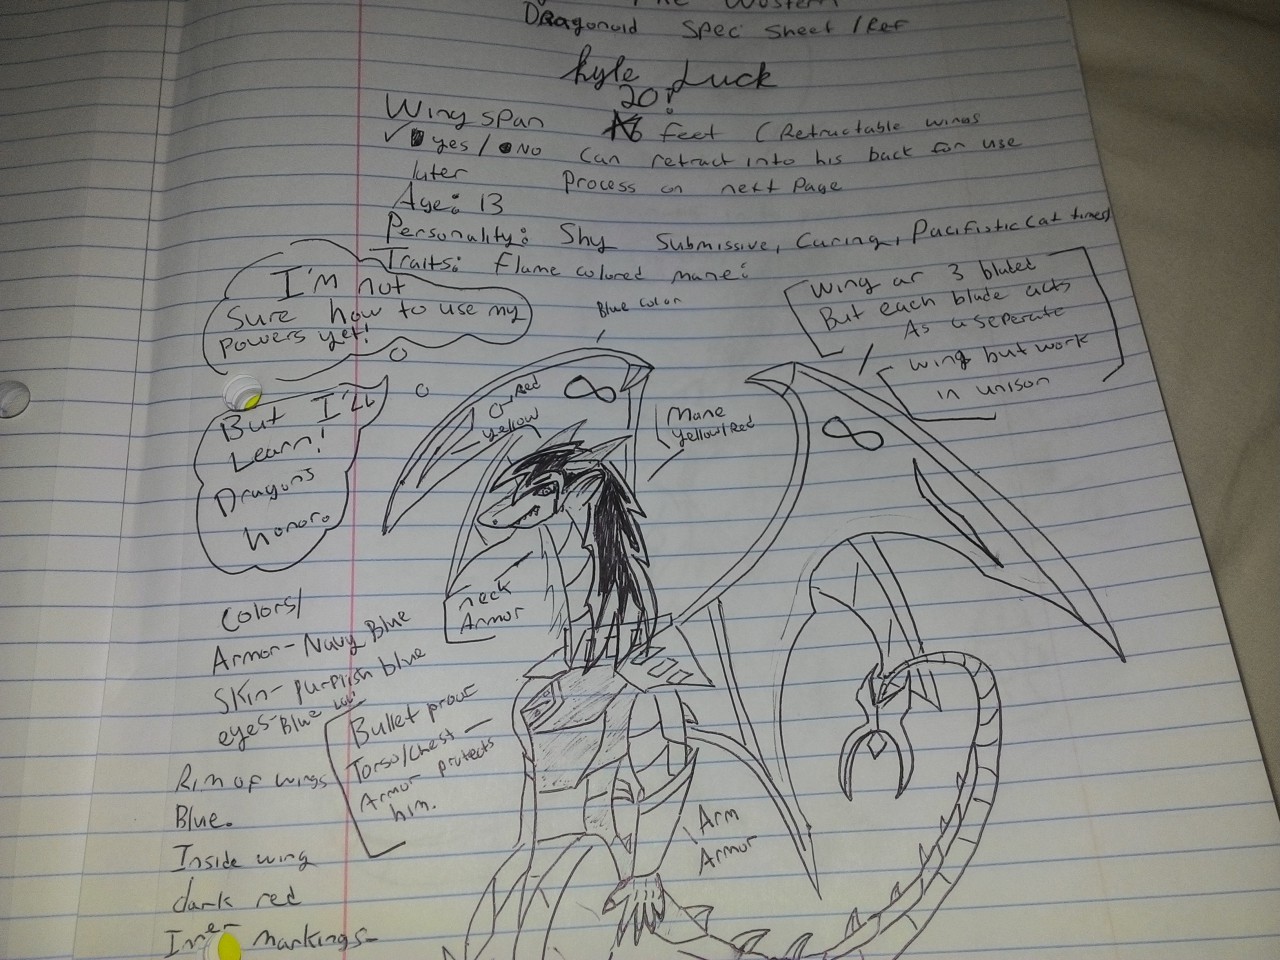 The Western
Dragonoid Spec Sheet / Ref
Kyle Luck
20?
Wing span 16 feet (Retractable wings
✓ yes / No can retract into his back for use
later Process on next Page
Age: 13
Personality: Shy Submissive, Caring, Pacifistic (at times)
Traits: Flame colored mane:
I'm not
Sure how to use my
powers yet!
But I'll
Learn!
Dragons
honor.
Blue color
Wing ar 3 bladed
But each blade acts
As a seperate
wing but work
in unison
Red
yellow
∞
∞
Mane
yellow/Red
neck
Armor
Colors/
Armor - Navy Blue
Skin - purplish blue
eyes - Blue
Bullet proof
Torso/chest
Armor protects
him.
Rim of wings
Blue.
Inside wing
dark red
Inner markings -
Arm
Armor